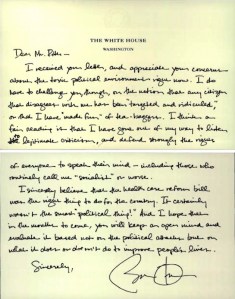 THE WHITE HOUSE
WASHINGTON
Dear Mr. Ritter -
I received your letter, and appreciate your concerns
about the toxic political environment right now. I do
have to challenge you, though, on the notion that any citizen
that disagrees with me has been "targeted and ridiculed,"
or that I have "made fun" of tea-baggers. I think a
fair reading is that I have gone out of my way to listen
to legitimate criticism, and defend strongly the right
of everyone to speak their mind – including those who
routinely call me "socialist" or worse.
I sincerely believe that the health care reform bill
was the right thing to do for the country. It certainly
wasn't the smart "political" thing! And I hope that
in the months to come, you will keep an open mind and
evaluate it based not on the political attacks but on
what it does or doesn't do to improve people's lives.
Sincerely,